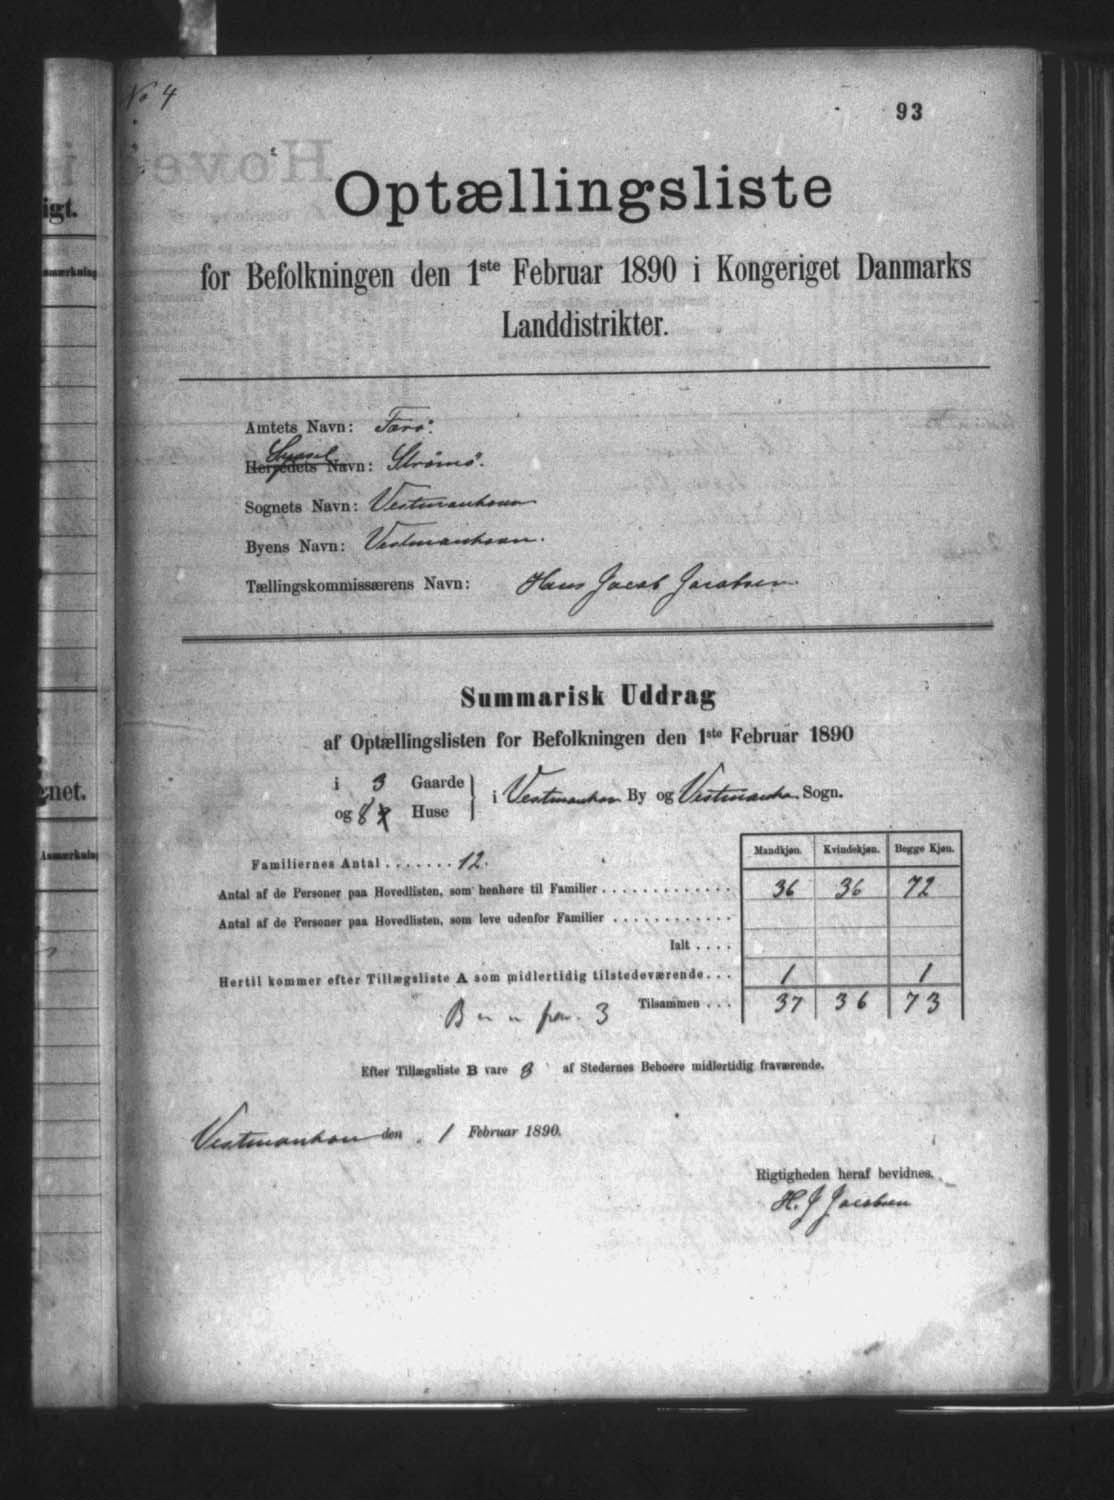 No 4
93
Optællingsliste
for Befolkningen den 1ste Februar 1890 i Kongeriget Danmarks
Landdistrikter.
Amtets Navn: Færø.
Syssel
Herredets Navn: Strømø.
Sognets Navn: Vestmanhavn
Byens Navn: Vestmanhavn.
Tællingskommissærens Navn: Hans Jacob Jacobsen
Summarisk Uddrag
af Optællingslisten for Befolkningen den 1ste Februar 1890
i 3 Gaarde
og 8 Huse
i Vestmanhavn By og Vestmanha. Sogn.
Mandkjøn. Kvindekjøn. Begge Kjøn.
Familiernes Antal . . . . . . . 12.
Antal af de Personer paa Hovedlisten, som henhøre til Familier . . . . . . . . . . . . 36 36 72
Antal af de Personer paa Hovedlisten, som leve udenfor Familier . . . . . . . . . . . .
Ialt . . . .
Hertil kommer efter Tillægsliste A som midlertidig tilstedeværende. . . 1 1
Tilsammen . . . 37 36 73
B " " frav. 3
Efter Tillægsliste B vare 3 af Stedernes Beboere midlertidig fraværende.
Vestmanhavn den 1 Februar 1890.
Rigtigheden heraf bevidnes.
H. J Jacobsen
igt.
gnet.